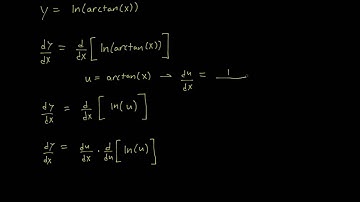 y = ln(arctan(x))
dy/dx = d/dx [ln(arctan(x))]
u = arctan(x) → du/dx = 1/
dy/dx = d/dx [ln(u)]
dy/dx = du/dx · d/du [ln(u)]